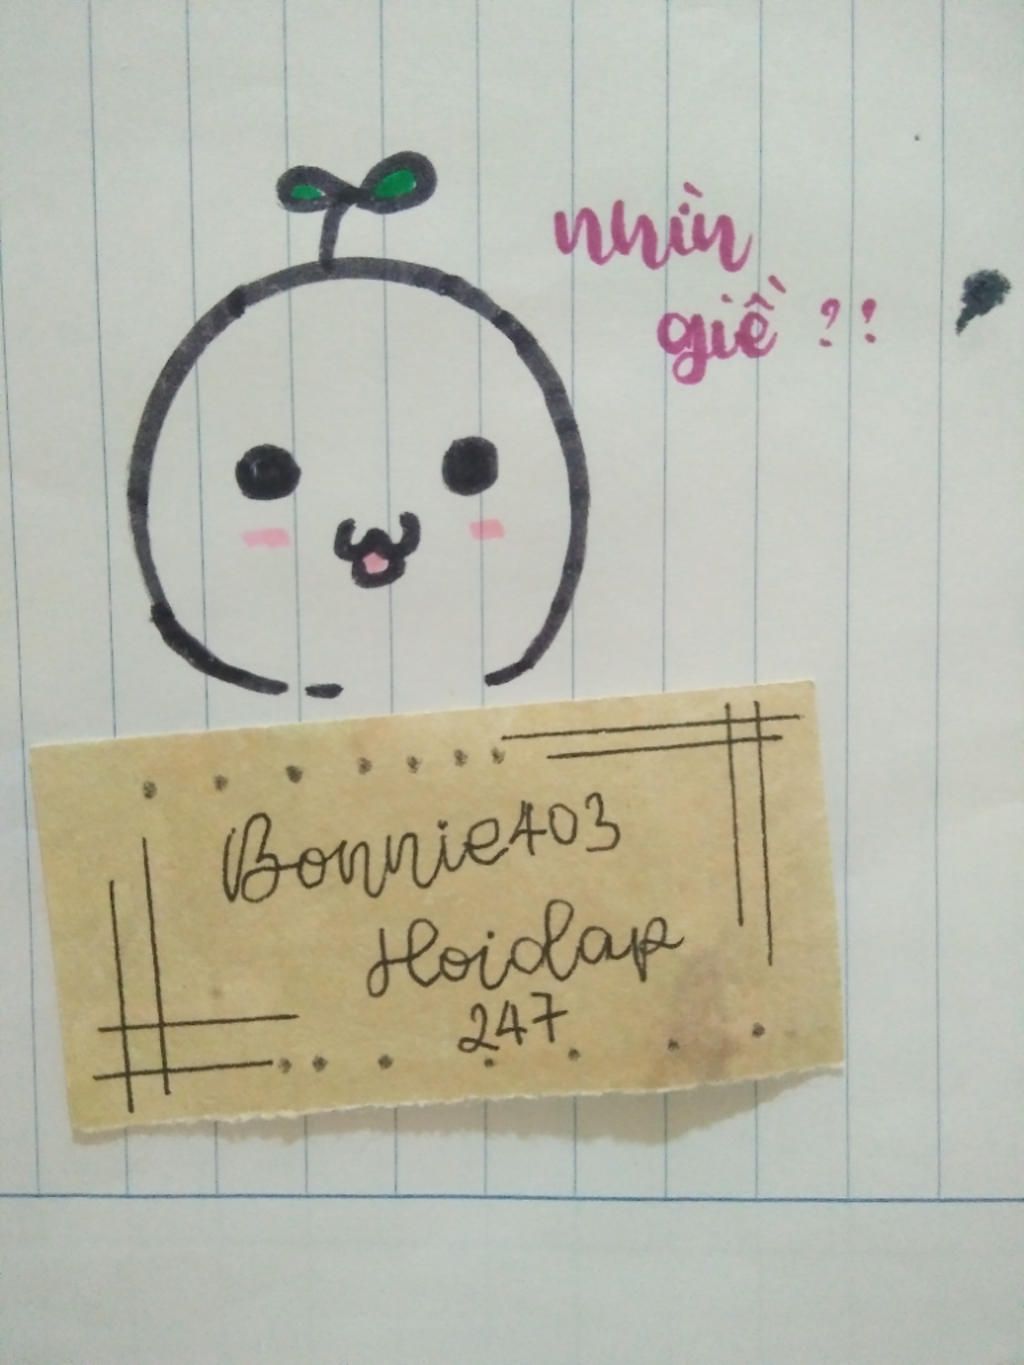 nhìn
giề ??
Bonnie403
Hoidap
247